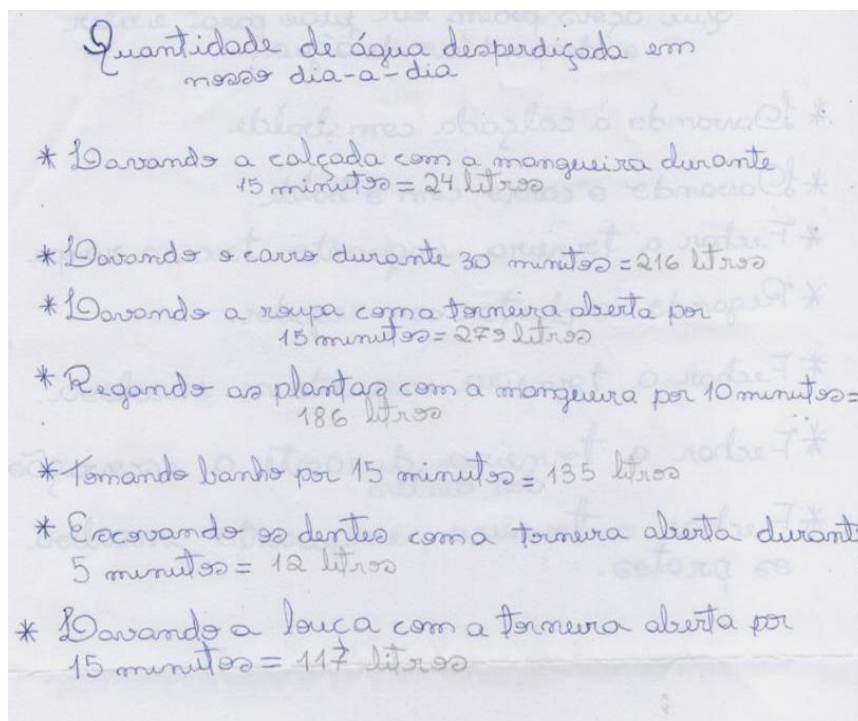 Quantidade de água desperdiçada em
nosso dia-a-dia
* Lavando a calçada com a mangueira durante
15 minutos = 24 litros
* Lavando o carro durante 30 minutos = 216 litros
* Lavando a roupa com a torneira aberta por
15 minutos = 279 litros
* Regando as plantas com a mangueira por 10 minutos =
186 litros
* Tomando banho por 15 minutos = 135 litros
* Escovando os dentes com a torneira aberta durant
5 minutos = 12 litros
* Lavando a louça com a torneira aberta por
15 minutos = 117 litros